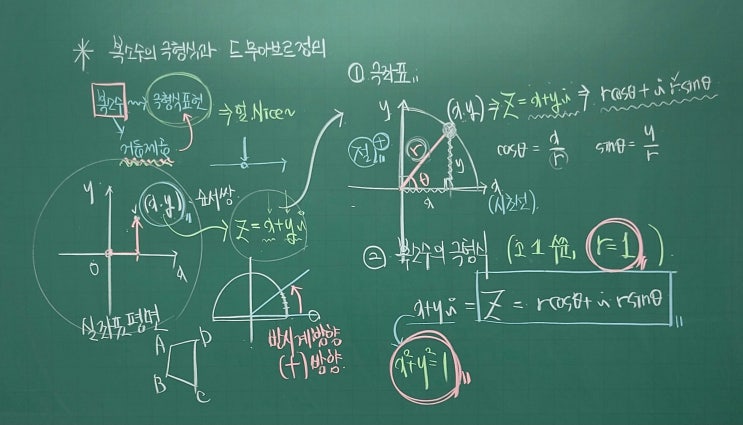 * 복소수의 극형식과 드 무아브르 정리
복소수 → 극형식 표현
거듭제곱
⇒ 필. Nice~
y
(x, y)
순서쌍
Z = x+yi
0
x
실좌표평면
A D
B C
반시계방향
(+)방향
① 극좌표
y
(x, y) ⇒ Z = x+yi ⇒ rcosθ + i rsinθ
r
θ
y
x
x
(시초선)
cosθ = x/r
sinθ = y/r
② 복소수의 극형식 (고1 수준, r=1)
x+yi = Z = rcosθ + i rsinθ
x²+y²=1